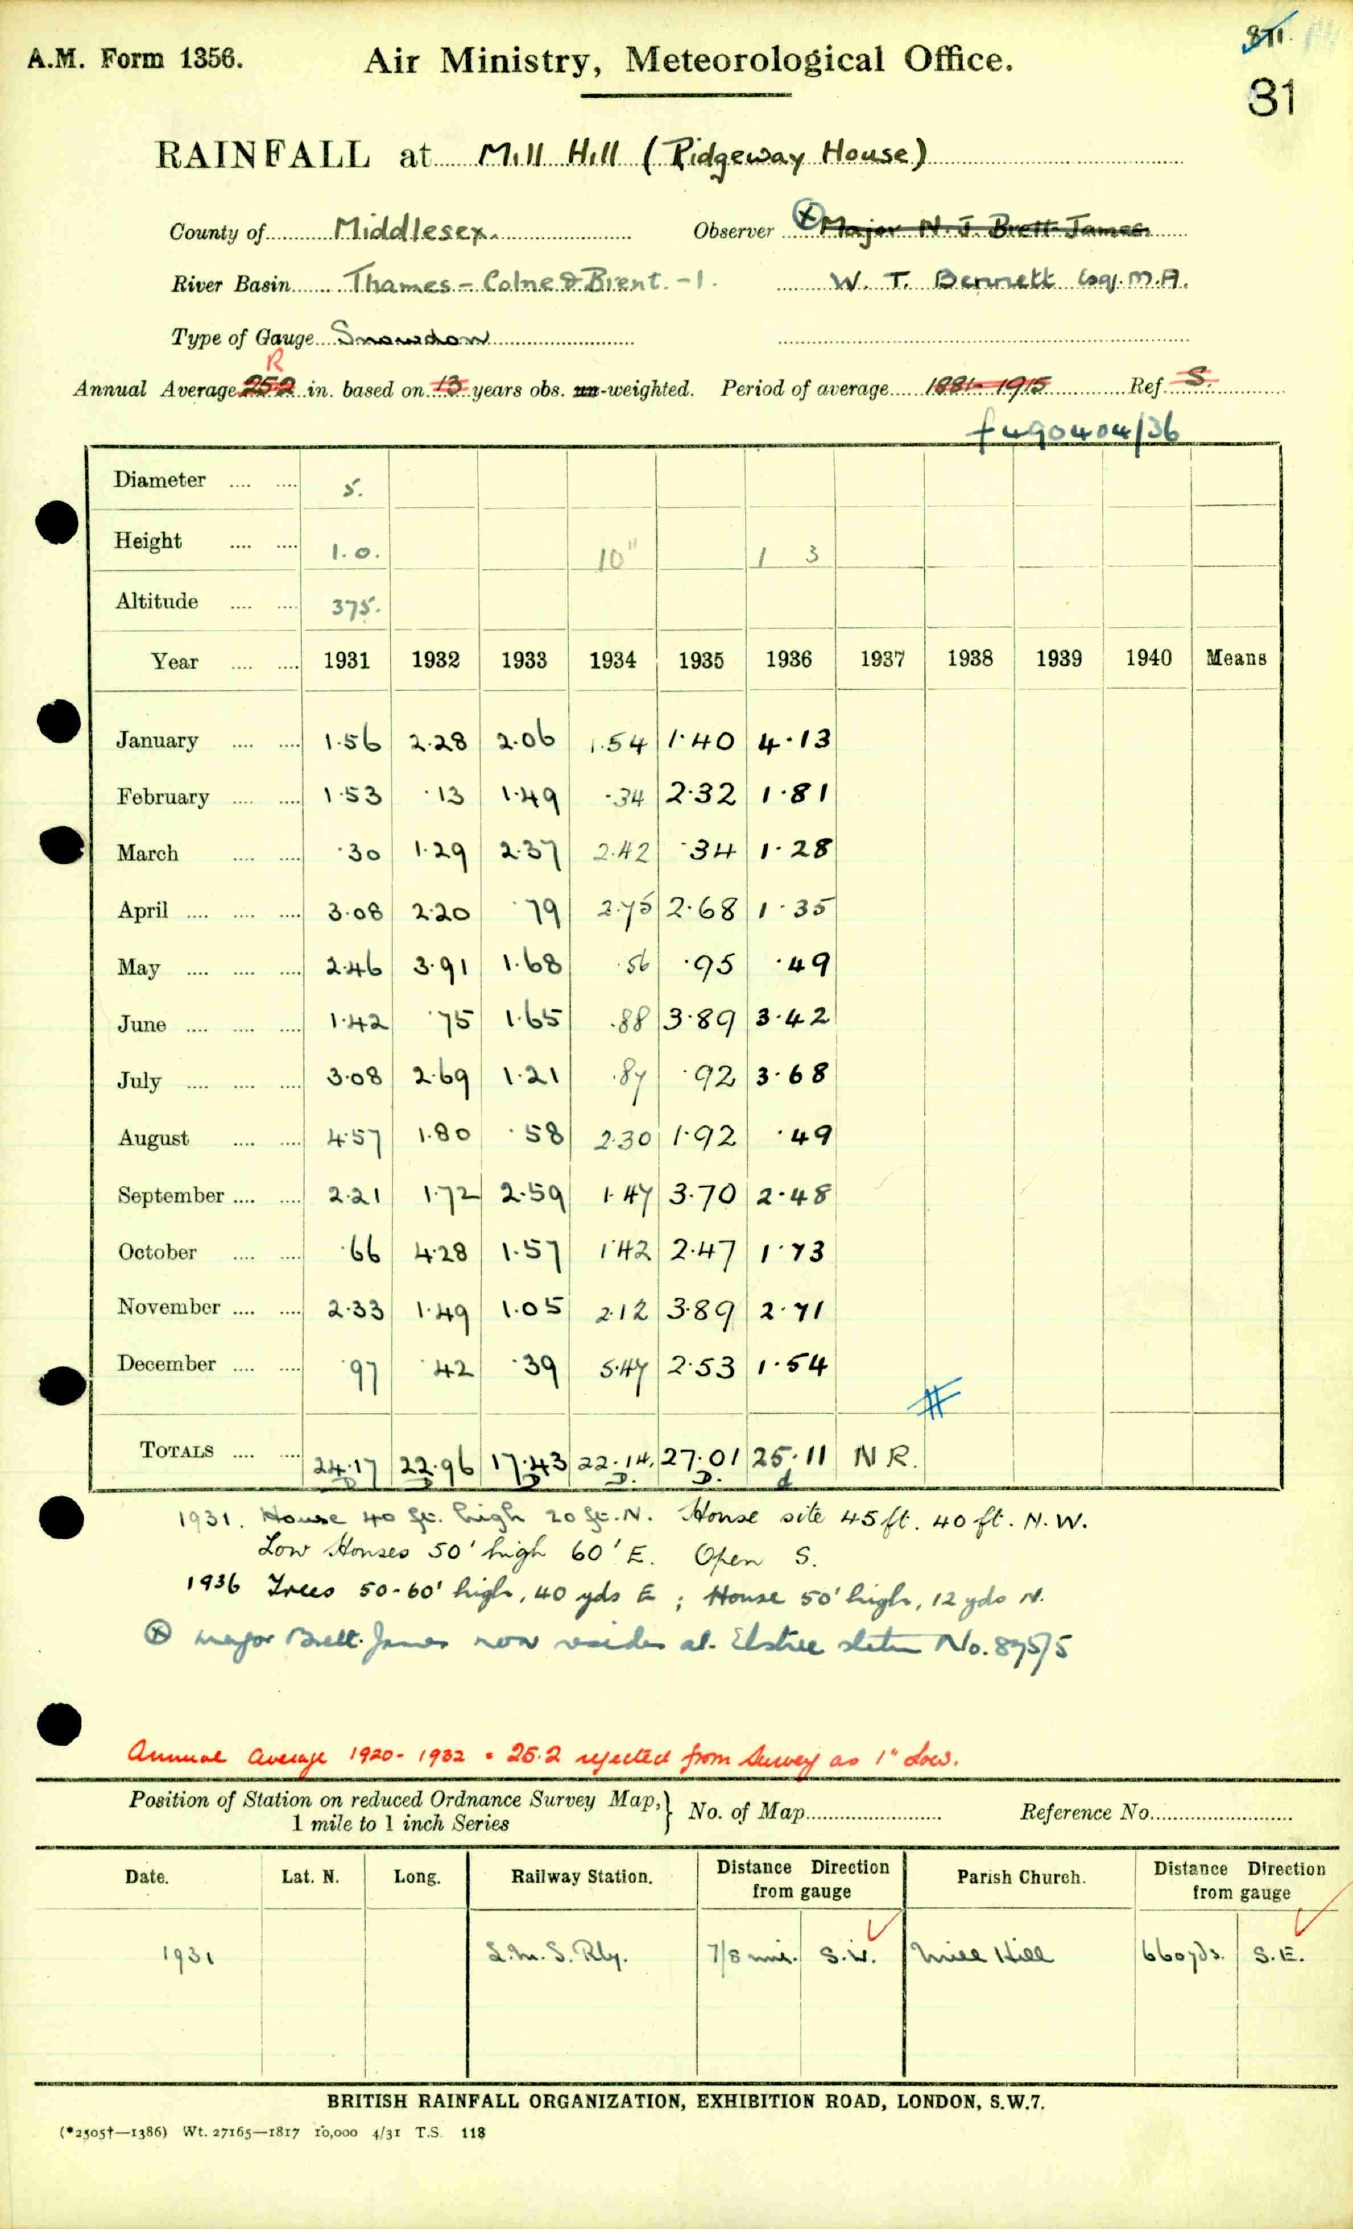 A.M. Form 1356.
Air Ministry, Meteorological Office.
31
RAINFALL at Mill Hill (Ridgeway House)
County of Middlesex. Observer Major N. J. Brett-James
River Basin Thames - Colne & Brent. -1. W. T. Bennett Esq. M.A.
Type of Gauge Snowdon
R
Annual Average 25.2 in. based on 13 years obs. un-weighted. Period of average 1881-1915 Ref. S.
f490404/36
Diameter .... .... 5.
Height .... .... 1.0. 10" 1 3
Altitude .... .... 375.
Year .... .... 1931 1932 1933 1934 1935 1936 1937 1938 1939 1940 Means
January .... .... 1.56 2.28 2.06 1.54 1.40 4.13
February .... .... 1.53 .13 1.49 .34 2.32 1.81
March .... .... .30 1.29 2.37 2.42 .34 1.28
April .... .... .... 3.08 2.20 .79 2.75 2.68 1.35
May .... .... .... 2.46 3.91 1.68 .56 .95 .49
June .... .... .... 1.42 .75 1.65 .88 3.89 3.42
July .... .... .... 3.08 2.69 1.21 .87 .92 3.68
August .... .... 4.57 1.80 .58 2.30 1.92 .49
September .... .... 2.21 1.72 2.59 1.47 3.70 2.48
October .... .... .66 4.28 1.57 1.42 2.47 1.73
November .... .... 2.33 1.49 1.05 2.12 3.89 2.71
December .... .... .97 .42 .39 5.47 2.53 1.54
TOTALS .... .... 24.17 22.96 17.43 22.14. 27.01 25.11 N R.
D D D D. D. d
1931. House 40 ft. high 20 ft. N. House site 45 ft. 40 ft. N.W.
Low Houses 50' high 60' E. Open S.
1936 Trees 50-60' high, 40 yds E ; House 50' high, 12 yds N.
⊗ Major Brett-James now resides at Elstree statn No. 875/5
Annual average 1920-1932 = 25.2 rejected from Survey as 1" Low.
Position of Station on reduced Ordnance Survey Map, } No. of Map Reference No.
1 mile to 1 inch Series
Date. Lat. N. Long. Railway Station. Distance Direction from gauge Parish Church. Distance Direction from gauge
1931 L.M.S. Rly. 7/8 mi. S.W. Mill Hill 660 yds. S.E.
BRITISH RAINFALL ORGANIZATION, EXHIBITION ROAD, LONDON, S.W.7.
(*2505†—1386) Wt. 27165—1817 10,000 4/31 T.S. 118